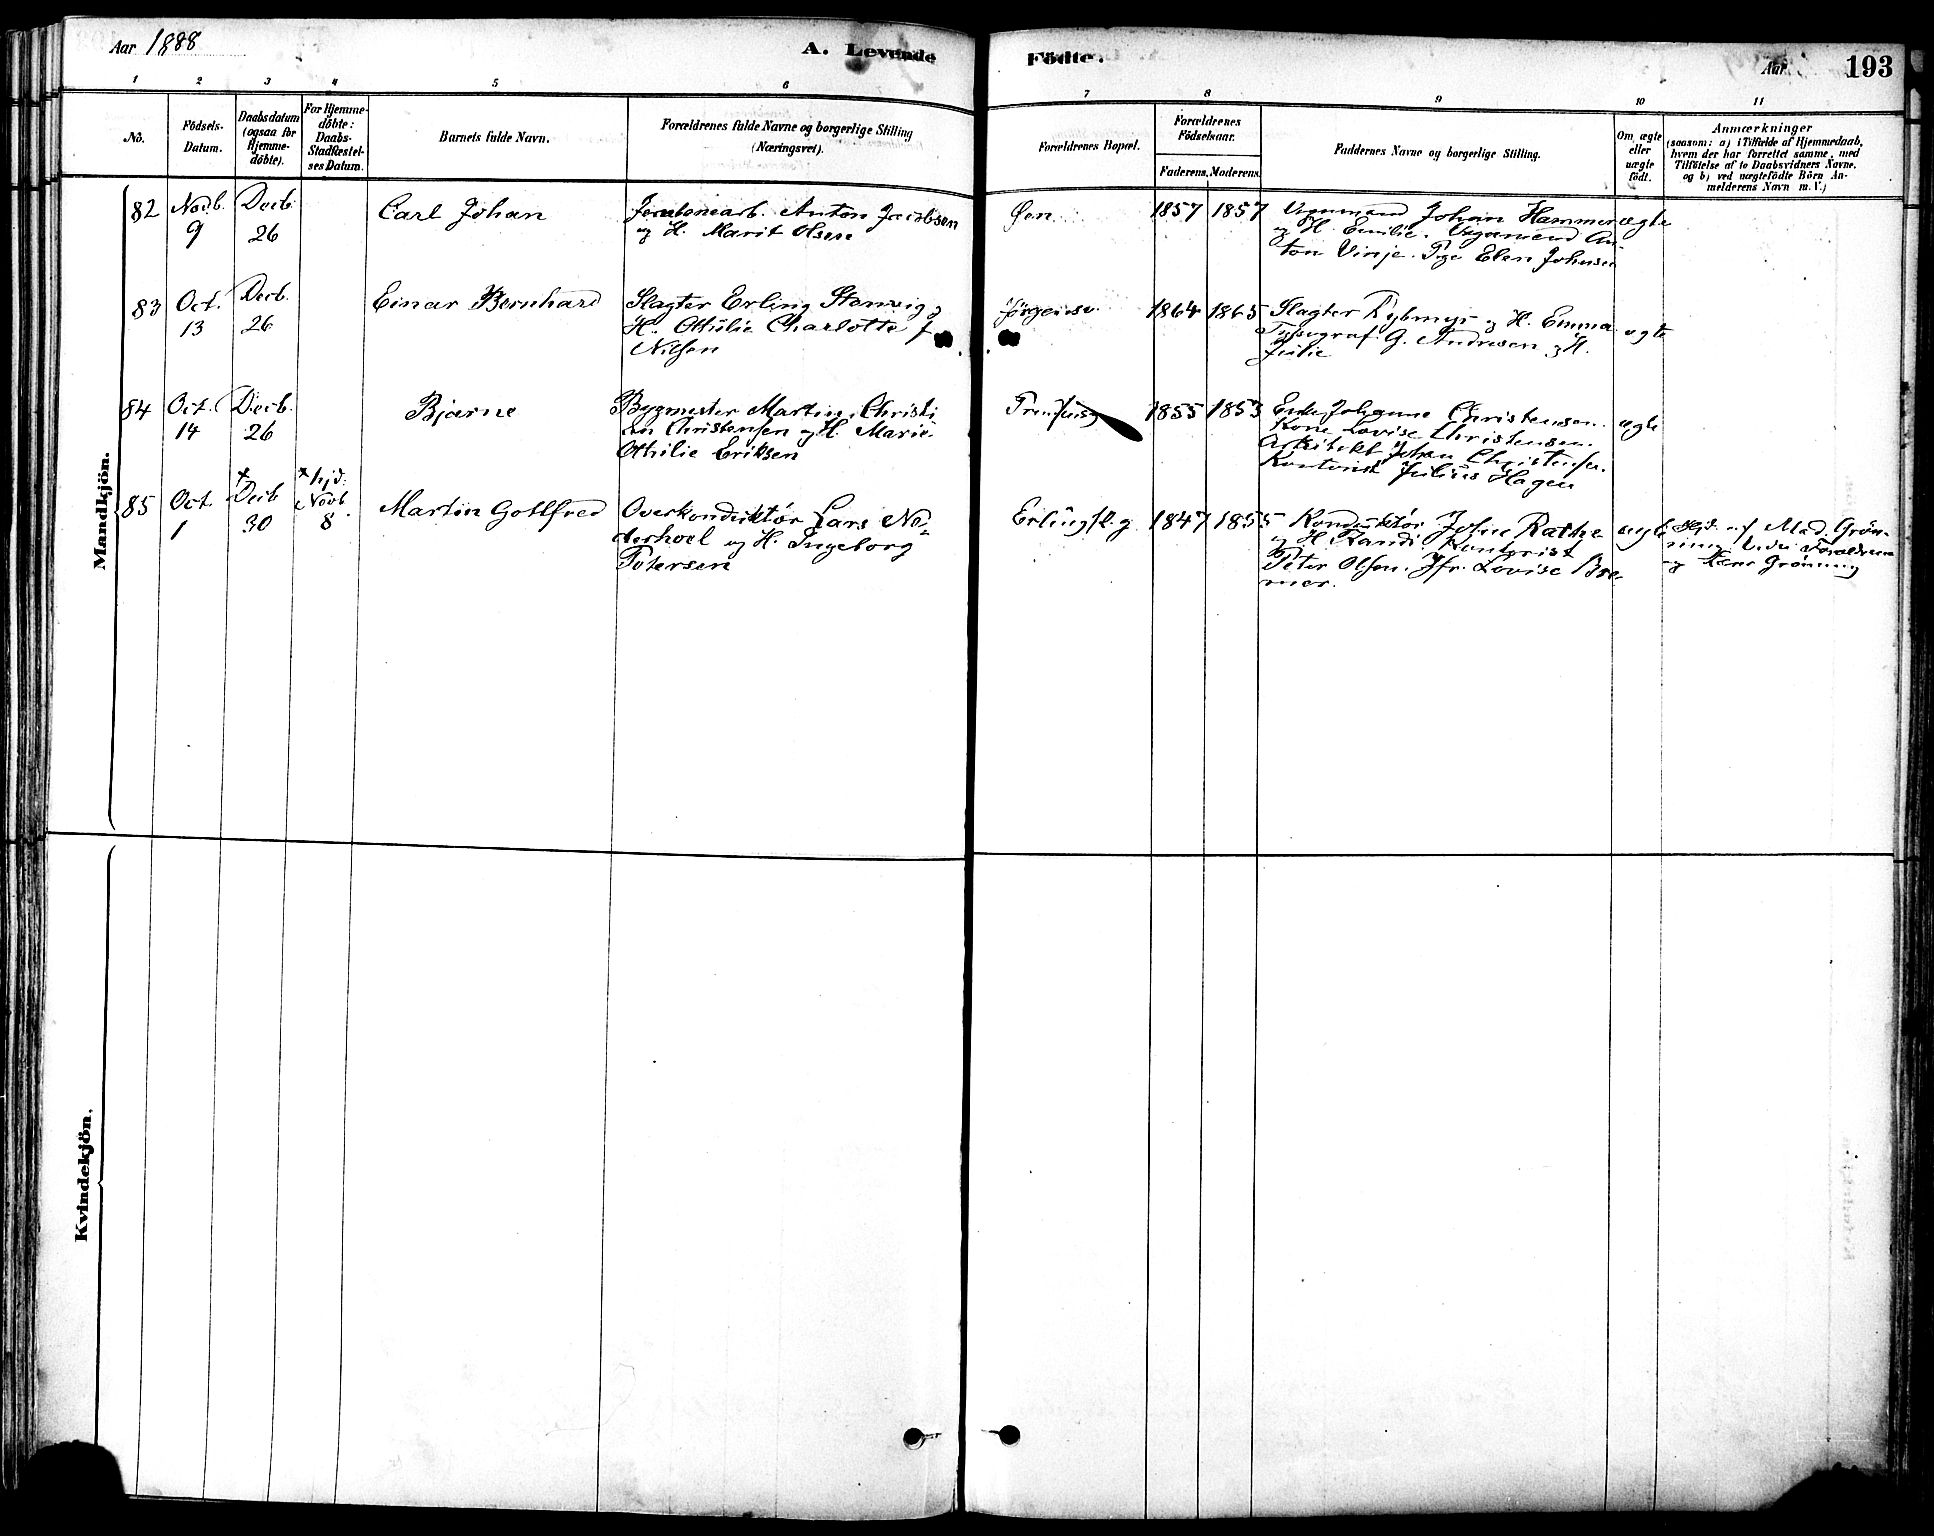 Aar 1888
A. Levende
Födte.
Aar
193
1
2
3
4
5
6
7
8
9
10
11
No.
Födsels-
Datum.
Daabsdatum
(ogsaa for
Hjemme-
døbte).
For Hjemme-
döbte:
Daabs-
Stadfæstel-
ses Datum.
Barnets fulde Navn.
Forældrenes fulde Navne og borgerlige Stilling
(Næringsvei).
Forældrenes Bopæl.
Forældrenes
Födselsaar.
Faderens. Moderens.
Faddernes Navne og borgerlige Stilling.
Om ægte
eller
uægte
födt.
Anmærkninger
(saasom: a) i Tilfælde af Hjemmedaab,
hvem der har forrettet samme, med
Tilföielse af to Daabsvidners Navne,
og b) ved uægtefödte Börn An-
melderens Navn m. V.)
Mandkjön.
82
Novb.
9
Decb.
26
Carl Johan
Jernbanearb. Anton Jacobsen
og H. Marit Olsen
Øen
1857
1857
Vognmand Johan Hammer
og H. Emilie. Vognmand An-
ton Vinje. Pige Elen Johnsen
ægte
83
Oct.
13
Decb.
26
Einar Bernhard
Slagter Erling Stenvig og
H. Othilie Charlotte f
Nilsen
Jørgensv.
1864
1865
Slagter og H. Emma
G. Andresen og H.
Julie
ægte
84
Oct.
14
Decb.
26
Bjarne
Bygmester Martin Christi
an Christensen og H. Marie
Othilie Eriksen
1855
1853
Enke Johanne Christensen.
Kone Lovise Christensen.
Arkitekt Johan Christensen.
Kontorist Julius Hagen
ægte
85
Oct.
1
x
Decb
30
x hjd.
Novb.
8
Martin Gottfred
Overkonduktør Lars Ne-
derhoel og H. Ingeborg
Petersen
Erling sk. g.
1847
1855
Konduktør John Rathe
og H. Randi. Kontorist
Peter Olsen. Jfr. Lovise Bre-
mer.
ægte
Hjd. af Mad. Grøn-
ning. Vidn. Forældrene
og Grønning
Kvindekjön.